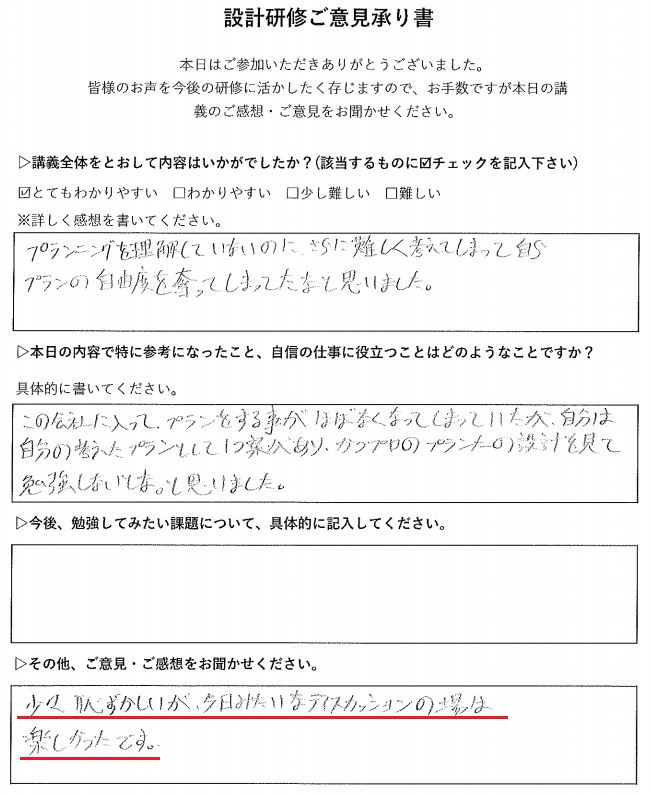 設計研修ご意見承り書
本日はご参加いただきありがとうございました。
皆様のお声を今後の研修に活かしたく存じますので、お手数ですが本日の講
義のご感想・ご意見をお聞かせください。
▷講義全体をとおして内容はいかがでしたか？(該当するものに☑チェックを記入下さい)
☑とてもわかりやすい　☐わかりやすい　☐少し難しい　☐難しい
※詳しく感想を書いてください。
プランニングを理解していないのに、さらに難しく考えてしまって自ら
プランの自由度を奪ってしまってたなと思いました。
▷本日の内容で特に参考になったこと、自信の仕事に役立つことはどのようなことですか？
具体的に書いてください。
この会社に入って、プランをする事がほぼなくなってしまっていたが、自分は
自分の考えたプランとして1つ案があり、かつプロのプランナーの設計を見て
勉強しないとな。と思いました。
▷今後、勉強してみたい課題について、具体的に記入してください。
▷その他、ご意見・ご感想をお聞かせください。
少々恥ずかしいが、今日みたいなディスカッションの場は
楽しかったです。